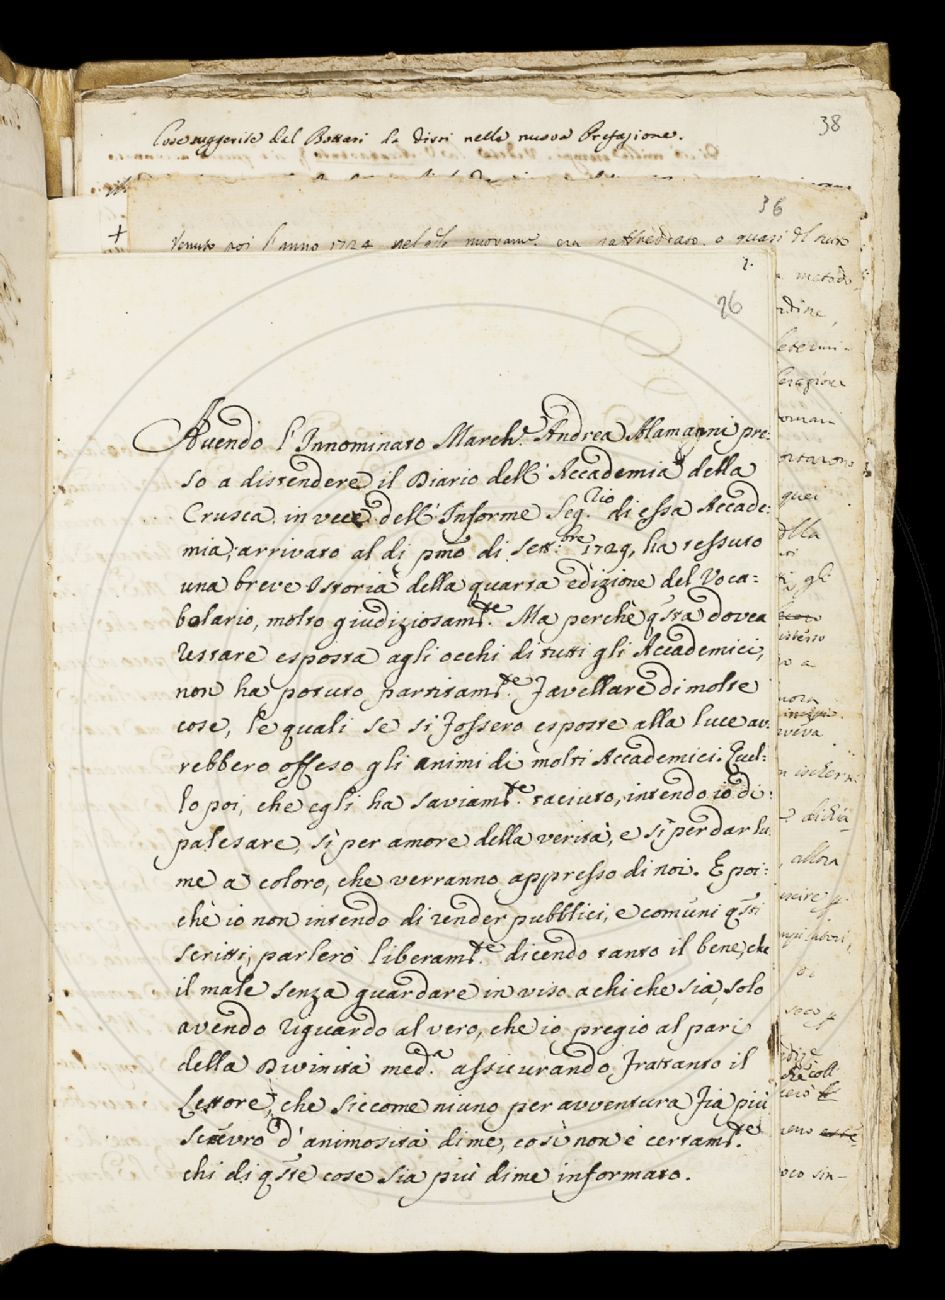 38
Cose suggerite dal Bottari da dirsi nella nuova Prefazione.
36
Venuto poi l'anno 1724 nel qle nuovame. era
+
26
Auendo l'Innominato March.e Andrea Alamanni pre:
so a distendere il Diario dell'Accademia della
Crusca in vece dell'Informe Seg.rio di essa Accade:
mia, arrivato al dì pmo di Sett.bre 1729, ha tessuto
una breve Istoria della quarta edizione del Voca:
bolario, molto giudiziosam.te. Ma perchè qsta dovea
restare esposta agli occhi di tutti gli Accademici,
non ha potuto partitam.te favellare di molte
cose, le quali se si fossero esposte alla luce av:
rebbero offeso gli animi di molti Accademici. Quel:
lo poi, che egli ha saviam.te taciuto, intendo io di
palesare, sì per amore della verità, e sì per dar lu
me a coloro, che verranno appresso di noi. E poi:
chè io non intendo di render pubblici, e comuni qsti
scritti, parlerò liberam.te dicendo tanto il bene, che
il male senza guardare in viso a chi che sia, solo
avendo riguardo al vero, che io pregio al pari
della Divinità med.a assicurando frattanto il
Lettore, che siccome niuno per avventura fia più
scevro d'animosità di me, così non è certam.te
chi di qste cose sia più di me informato.